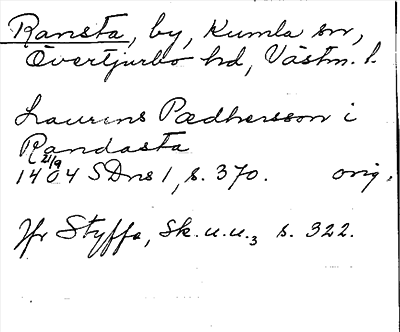 Ransta, by, Kumla sn,
Övertjurbo hd, Västm. l.
Laurens Pædhersson i
Randasta
1404 21/9 SDns 1, s. 370. orig.
Jfr Styffe, Sk.u.u.3 s. 322.